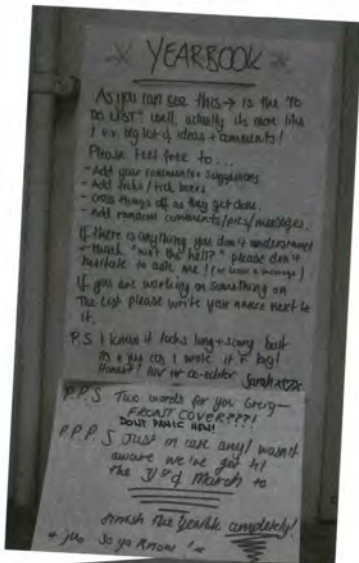 YEARBOOK
As you can see this → is the "TO
DO LIST" well, actually its more like
1 v.v. big list of ideas + comments!
Please feel free to...
- Add your comments + suggestions
- Add ticks / tick boxes
- Cross things off as they get done.
- Add random comments/pics/messages.
If there is anything you don't understand
+ think "wot the hell?" please don't
hesitate to ask me! (or leave a message)
If you are working on something on
The list please write your name next to
it.
P.S. I know it looks long + scary but
its jus cos I wrote it big!
Honest! luv ur co-editor Sarah
P.P.S Two words for you Greig -
FRONT COVER???!
DONT PANIC
P.P.P.S Just in case any1 wasn't
aware we've got til
the 31st March to
finish the Yearbk completely!
* jus so ya know! *